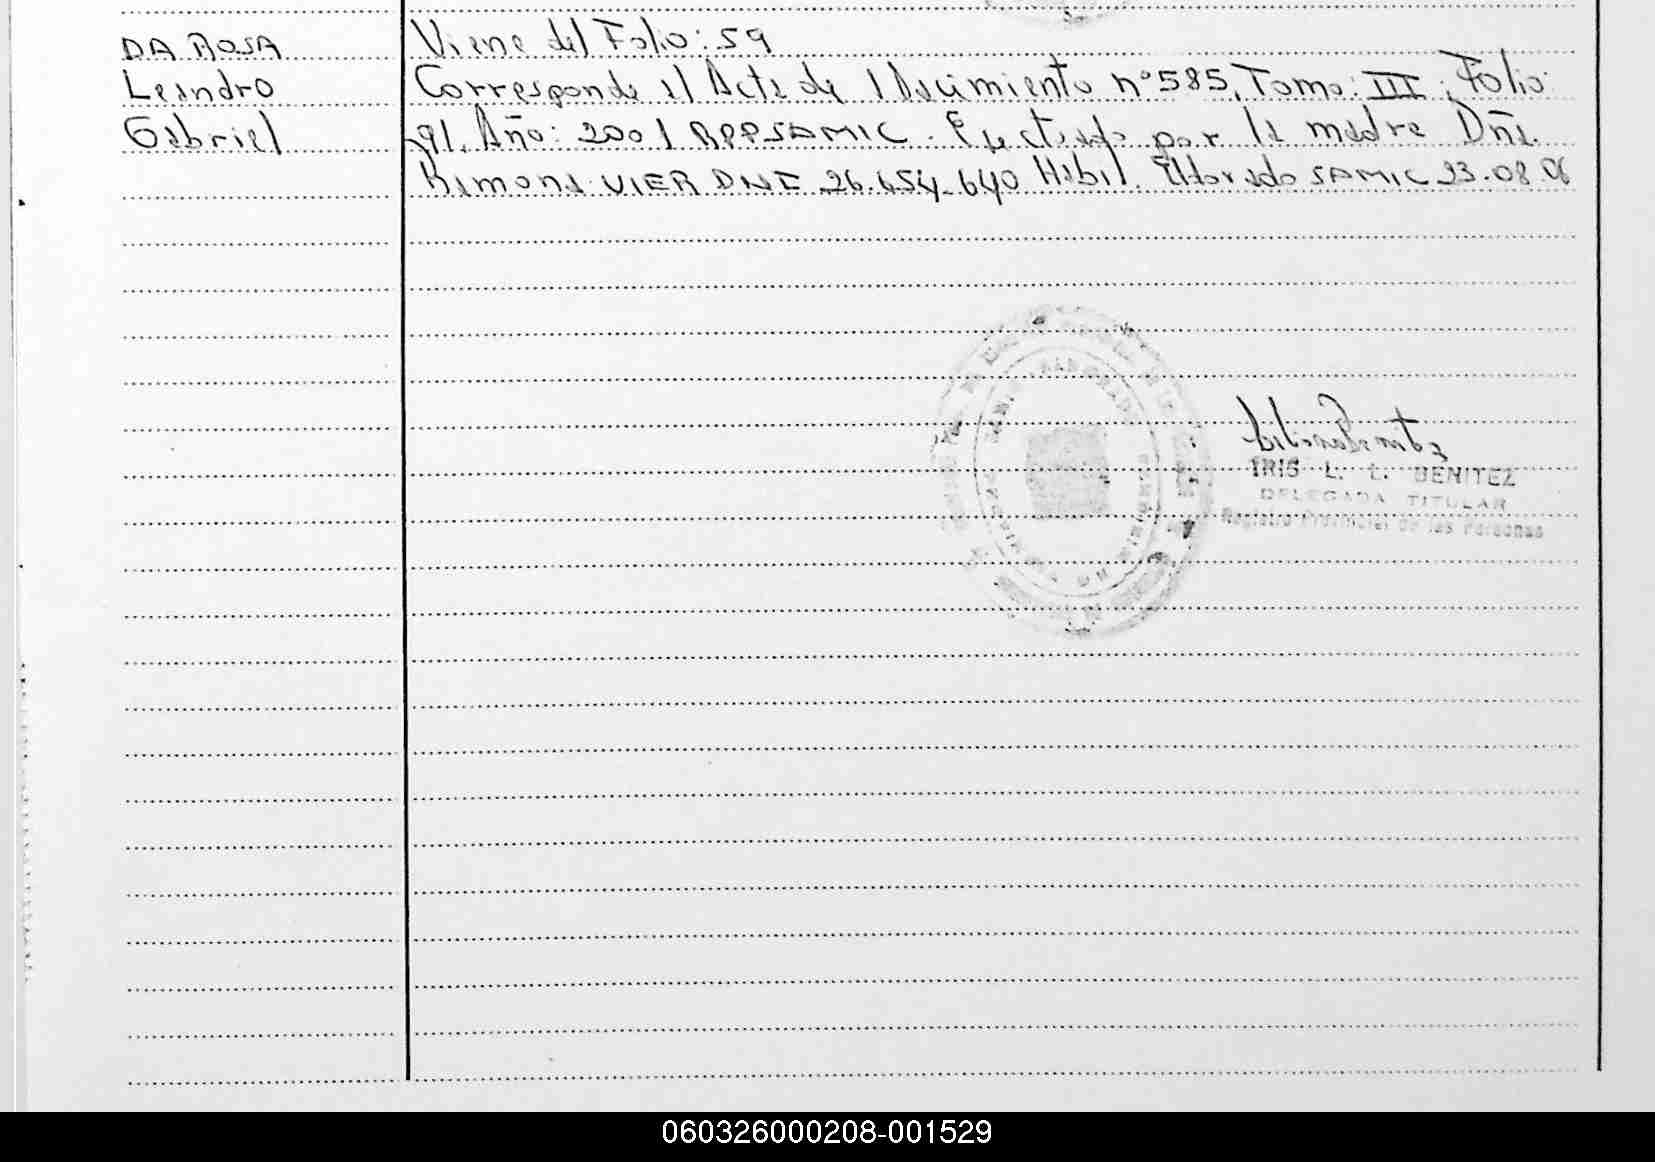 DA ROSA
Leandro
Gabriel
Viene del Folio: 59
Corresponde al Acta de Nacimiento nº 585, Tomo: III; Folio:
91. Año: 2001 RPPSAMIC. Efectuado por la madre Dña.
Ramona VIER DNI 26.654.640 Hábil. Eldorado SAMIC 23.08.06
IRIS L. L. BENITEZ
DELEGADA TITULAR
Registro Provincial de las Personas
060326000208-001529